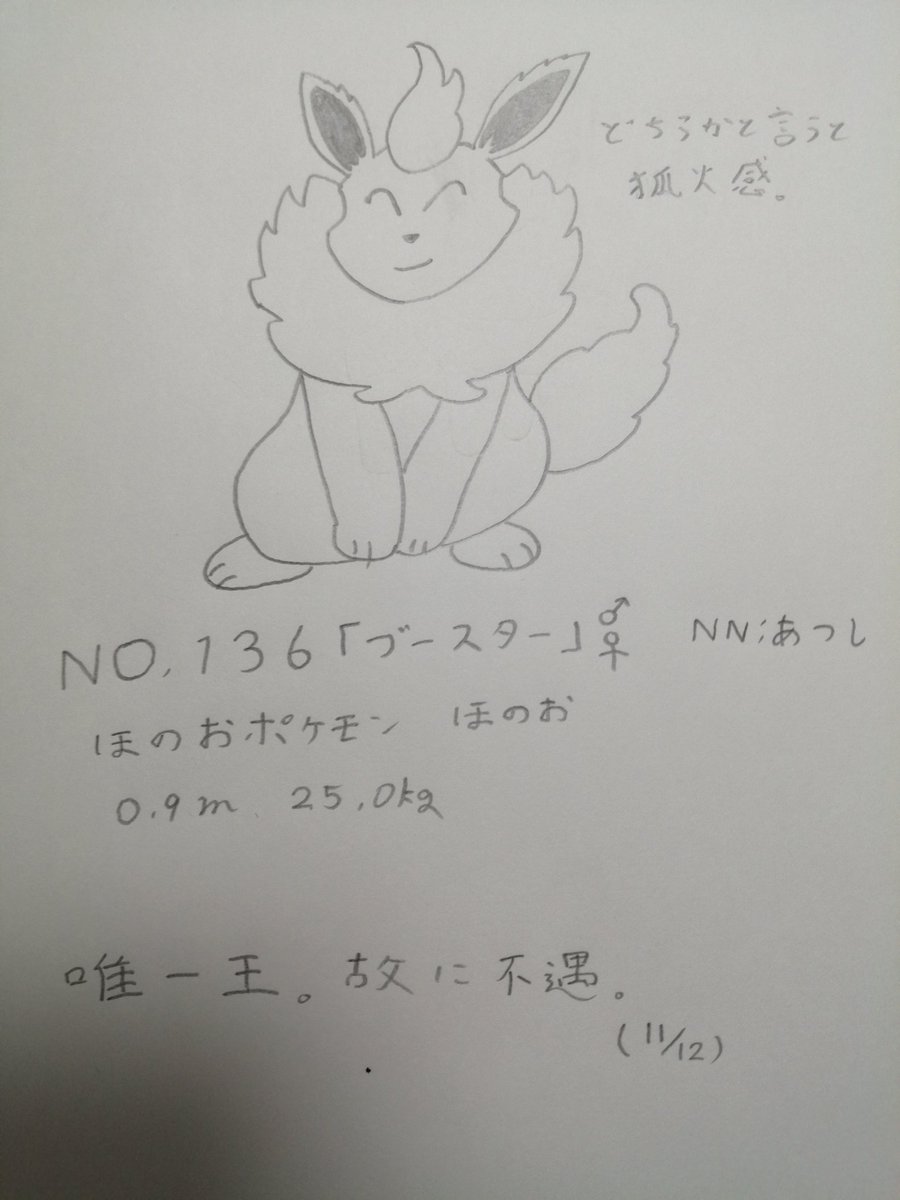 どちらかと言うと
狐火感。
NO.136「ブースター」♂♀ NN:あつし
ほのおポケモン ほのお
0.9m 25.0kg
唯一王。故に不遇。
(11/12)